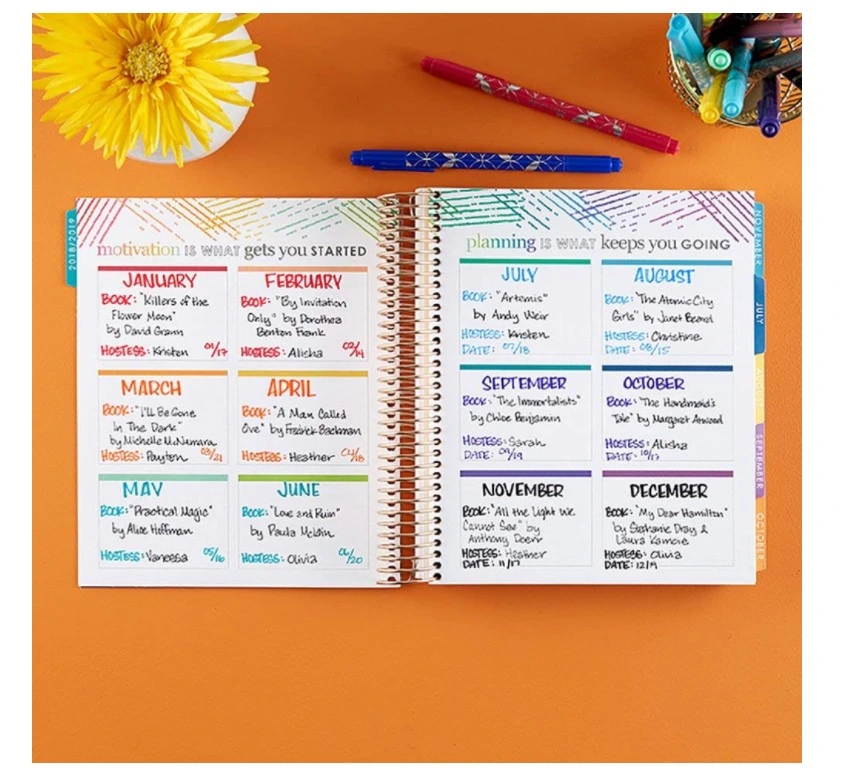 2018/2019
motivation IS WHAT gets you STARTED
JANUARY
BOOK: "Killers of the
Flower Moon"
by David Grann
HOSTESS: Kristen 01/17
FEBRUARY
BOOK: "By Invitation
Only" by Dorothea
Benton Frank
HOSTESS: Alisha 02/14
MARCH
BOOK: "I'll Be Gone
In The Dark"
by Michelle McNamara
HOSTESS: Payton 03/21
APRIL
BOOK: "A Man Called
Ove" by Fredrick Backman
HOSTESS: Heather 04/18
MAY
BOOK: "Practical Magic"
by Alice Hoffman
HOSTESS: Vanessa 05/16
JUNE
BOOK: "Love and Ruin"
by Paula McLain
HOSTESS: Olivia 06/20
planning IS WHAT keeps you GOING
JULY
BOOK: "Artemis"
by Andy Weir
HOSTESS: Kristen
DATE: 07/18
AUGUST
BOOK: "The Atomic City
Girls" by Janet Beard
HOSTESS: Christine
DATE: 08/15
SEPTEMBER
BOOK: "The Immortalists"
by Chloe Benjamin
HOSTESS: Sarah
DATE: 09/19
OCTOBER
BOOK: "The Handmaid's
Tale" by Margaret Atwood
HOSTESS: Alisha
DATE: 10/17
NOVEMBER
BOOK: "All the Light We
Cannot See" by
Anthony Doerr
HOSTESS: Heather
DATE: 11/17
DECEMBER
BOOK: "My Dear Hamilton"
by Stephanie Dray &
Laura Kamoie
HOSTESS: Olivia
DATE: 12/19
NOVEMBER
JULY
AUGUST
SEPTEMBER
OCTOBER